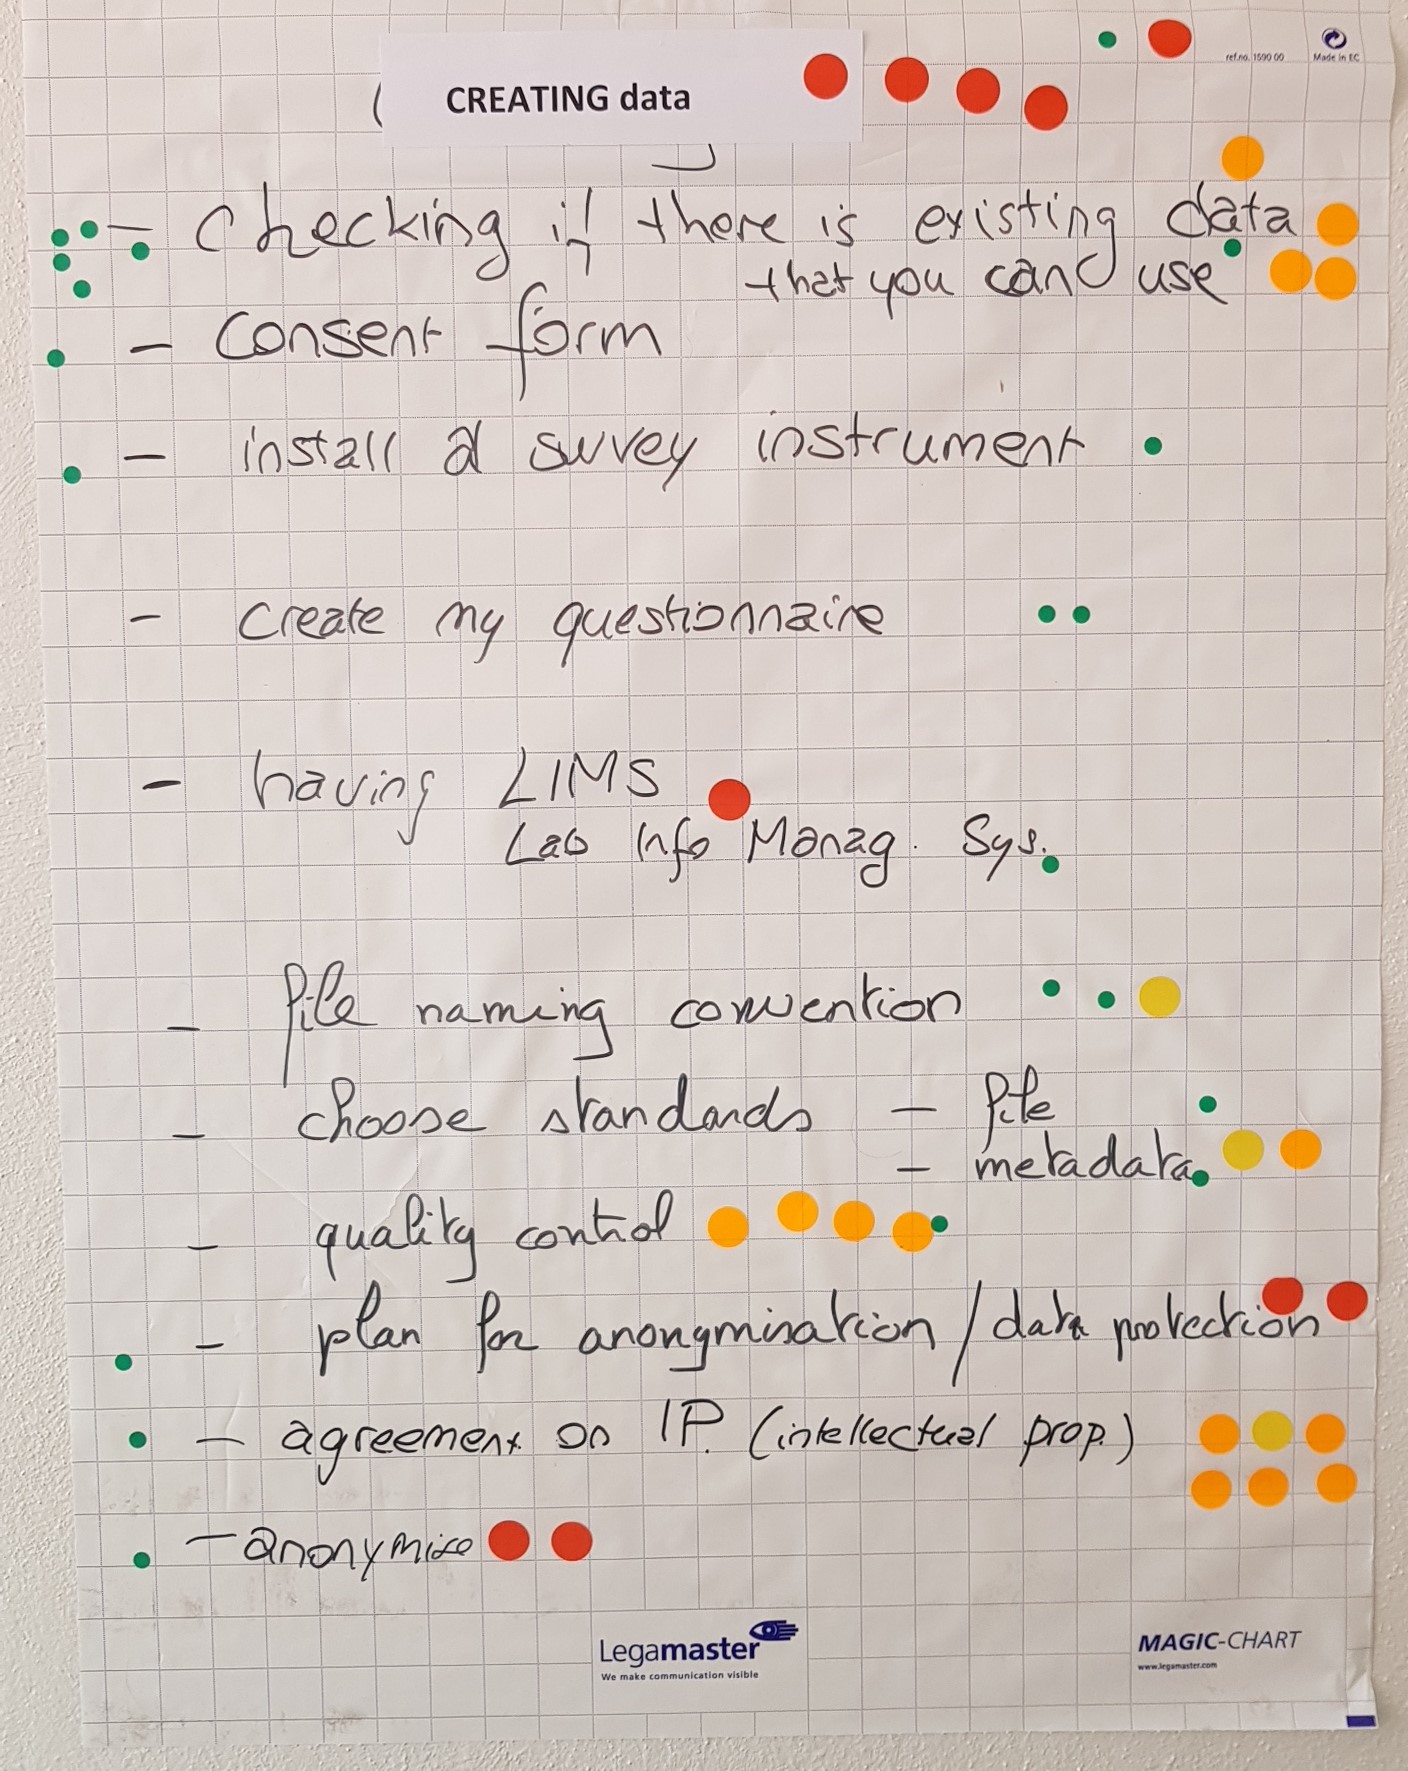 ref.no. 1590 00
Made in EC
CREATING data
- checking if there is existing data
that you can use
- consent form
- install a survey instrument
- create my questionnaire
- having LIMS
Lab Info Manag. Sys.
- file naming convention
- choose standards - file
- metadata
- quality control
- plan for anongmisation / data protection
- agreement on IP. (intellectual prop.)
- anonymise
Legamaster
We make communication visible
MAGIC-CHART
www.legamaster.com